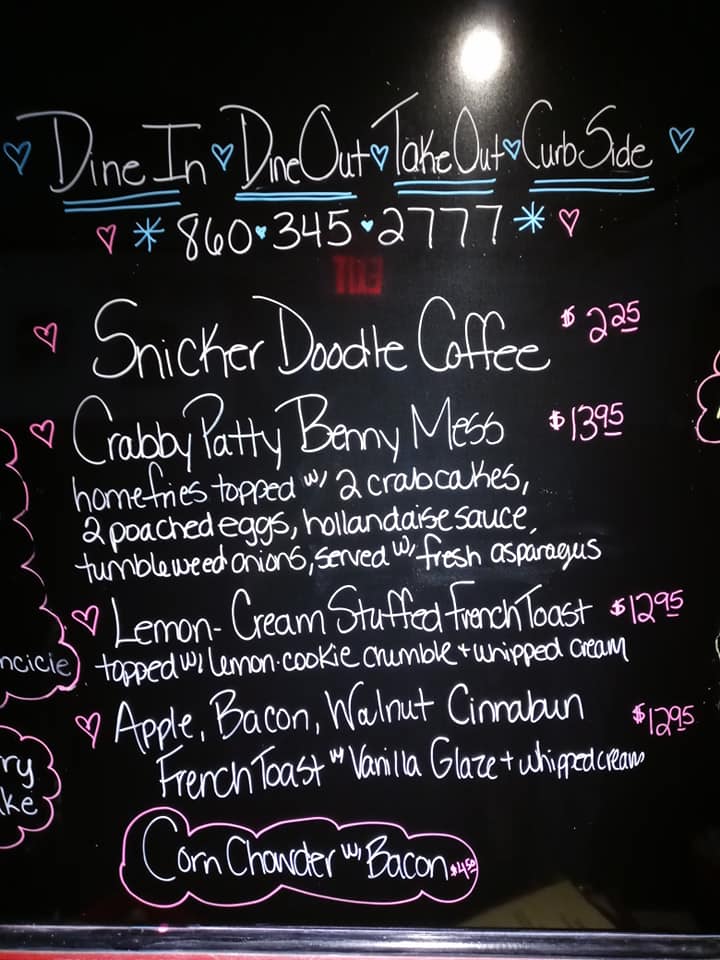 Dine In Dine Out Take Out Curb Side
* 860 345 2777 *
Snicker Doodle Coffee $2.25
Crabby Patty Benny Mess $13.95
homefries topped w/ 2 crabcakes,
2 poached eggs, hollandaise sauce,
tumbleweed onions, served w/ fresh asparagus
Lemon-Cream Stuffed French Toast $12.95
topped w/ lemon-cookie crumble + whipped cream
Apple, Bacon, Walnut Cinnabun $12.95
French Toast w/ Vanilla Glaze + whipped cream
Corn Chowder w/ Bacon $4.50
ncicie
ry
ke